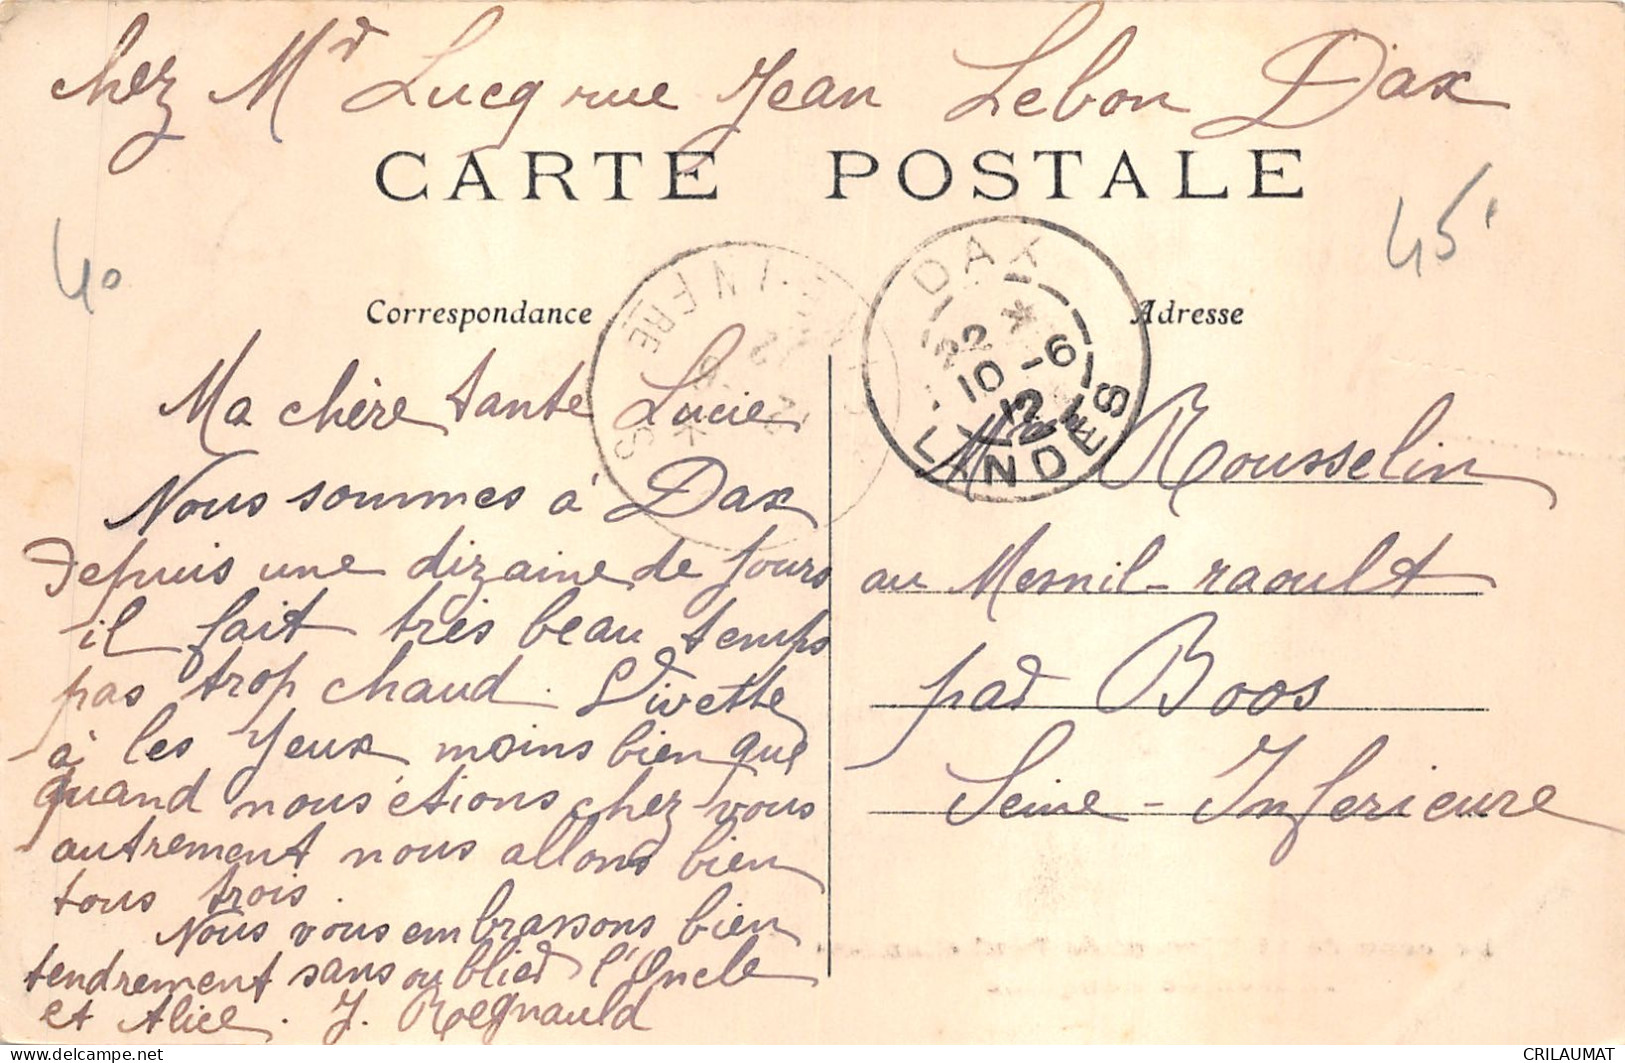 chez Mr Lucq rue Jean Lebon Dax
CARTE POSTALE
40
45
Correspondance
Adresse
DAX
22
10-6
12
LANDES
INFRE
Ma chère tante Lucie
Nous sommes à Dax
depuis une dizaine de jours
il fait très beau temps
pas trop chaud. Vivette
à les yeux moins bien que
quand nous étions chez vous
autrement nous allons bien
tous trois.
Nous vous embrassons bien
tendrement sans oublier l'Oncle
et Alice. J. Regnauld
Rousselin
au Mesnil-raoult
par Boos
Seine-Inferieure
CRILAUMAT